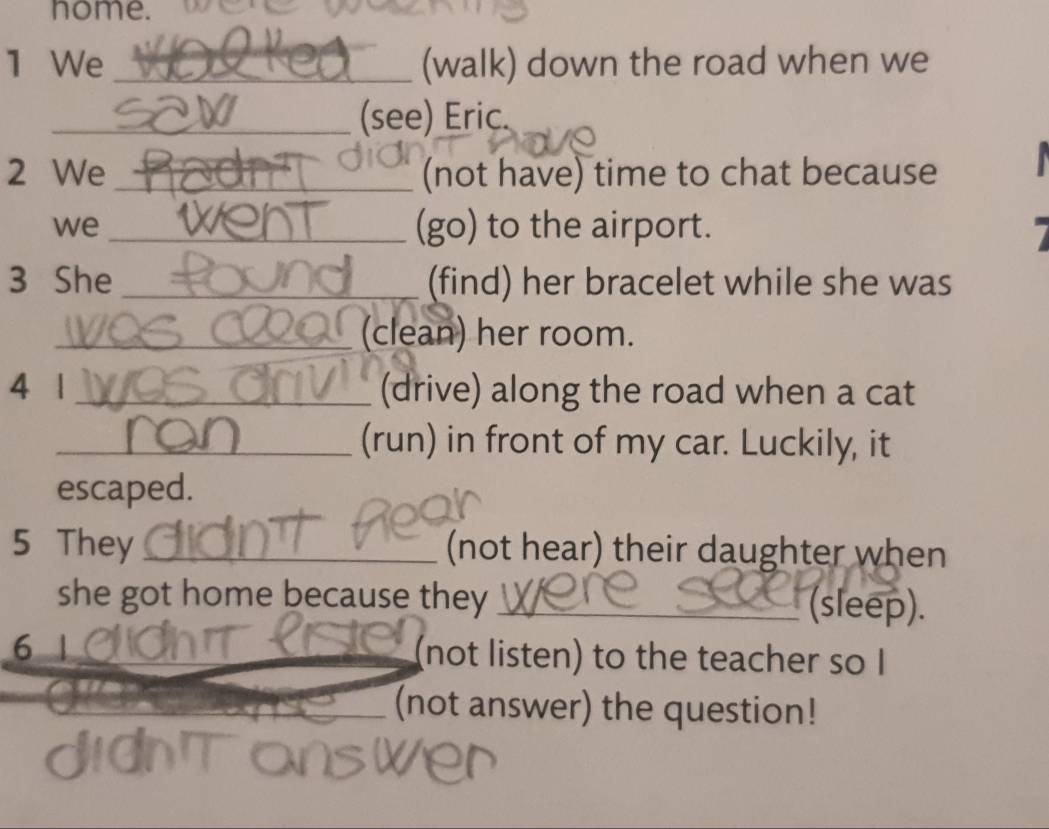 home. were walking
1 We walked (walk) down the road when we
saw (see) Eric.
2 We hadn't didn't have (not have) time to chat because
we went (go) to the airport.
3 She found (find) her bracelet while she was
was cleaning (clean) her room.
4 I was driving (drive) along the road when a cat
ran (run) in front of my car. Luckily, it
escaped.
5 They didn't hear (not hear) their daughter when
she got home because they were sleeping (sleep).
6 I didn't listen (not listen) to the teacher so I
(not answer) the question!
didn't answer